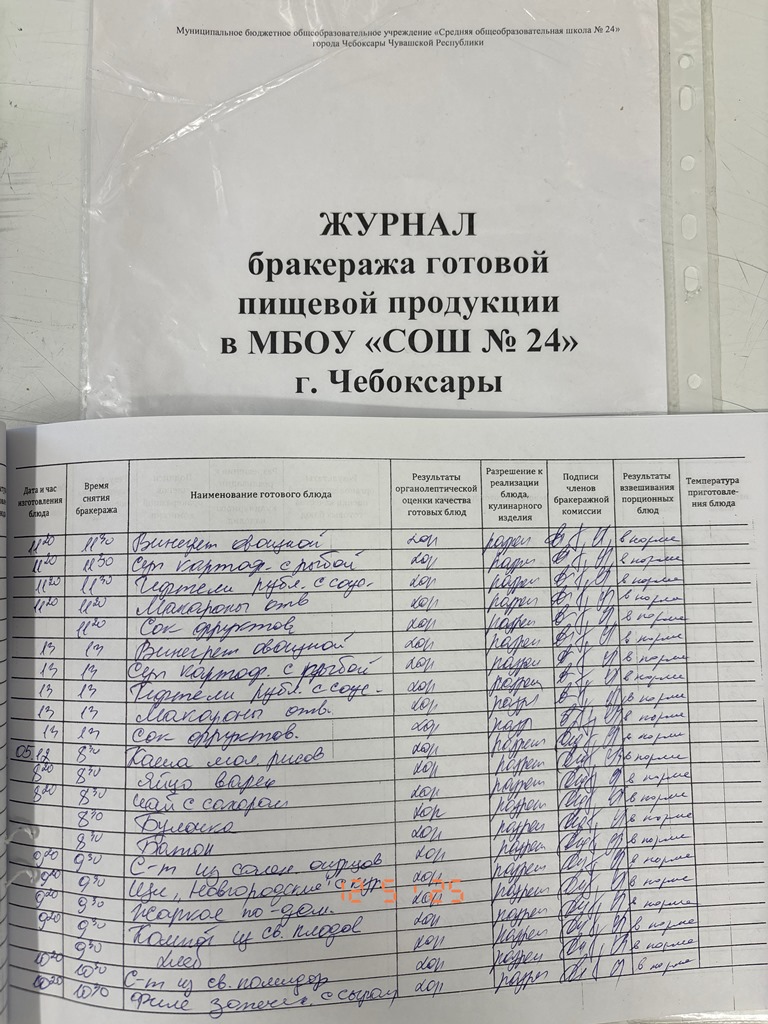 Муниципальное бюджетное общеобразовательное учреждение «Средняя общеобразовательная школа № 24»
города Чебоксары Чувашской Республики
ЖУРНАЛ
бракеража готовой
пищевой продукции
в МБОУ «СОШ № 24»
г. Чебоксары
Дата и час изготовления блюда
Время снятия бракеража
Наименование готового блюда
Результаты органолептической оценки качества готовых блюд
Разрешение к реализации блюда, кулинарного изделия
Подписи членов бракеражной комиссии
Результаты взвешивания порционных блюд
Температура приготовле-ния блюда
11 20 11 30 Винегрет овощной хор разреш в норме
11 20 11 30 Суп картоф. с рыбой хор разреш в норме
11 20 11 30 Тефтели рубл. с соус. хор разреш в норме
11 20 11 20 Макароны отв хор разреш в норме
11 20 Сок фруктов хор разреш в норме
13 13 Винегрет овощной хор разреш в норме
13 13 Суп картоф. с рыбой хор разреш в норме
13 13 Тефтели рубл. с соус. хор разреш в норме
13 13 Макароны отв. хор разр в норме
13 13 Сок фруктов. хор разр в норме
05.12 8 30 Каша мол. рисов хор разреш в норме
8 20 8 30 Яйцо варен хор разреш в норме
8 20 8 30 Чай с сахаром хор разреш в норме
8 30 Булочка хор разреш в норме
8 30 Батон хор разреш в норме
9 20 9 30 С-т из солен. огурцов хор разреш в норме
9 20 9 30 Щи, Новгородские хор разреш в норме
9 20 9 30 Жаркое по-дом. хор разреш в норме
9 20 9 30 Компот из св. плодов хор разреш в норме
9 30 Хлеб хор разреш в норме
10 20 10 30 С-т из св. помидор хор разреш в норме
10 20 10 30 Филе запечен. с сыром хор разреш в норме
12 5 '25